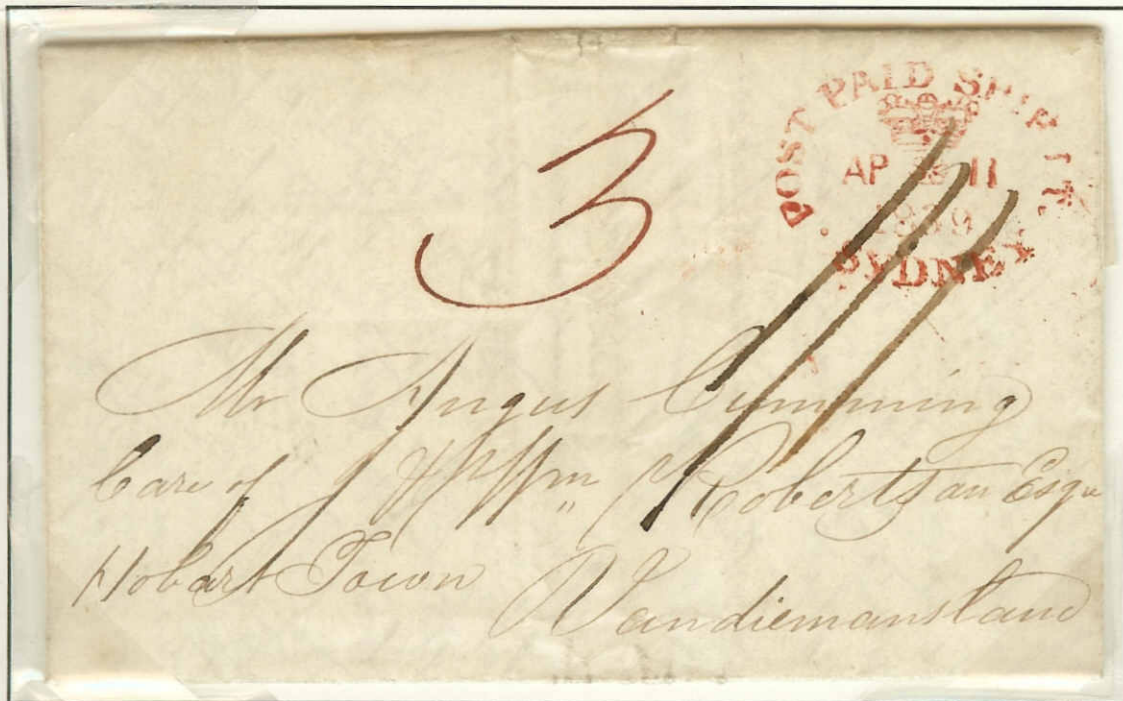 POST PAID SHIP LR
AP 11
1839
SYDNEY
3
Mr Angus Cumming
Care of Wm Robertson Esqr
Hobart Town Vandiemansland